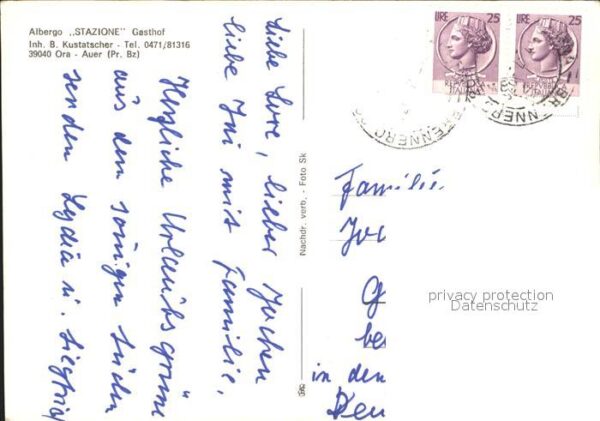 Albergo „STAZIONE" Gasthof
Inh. B. Kustatscher - Tel. 0471/81316
39040 Ora - Auer (Pr. Bz)
Liebe Lore, lieber Jochen
liebe Ini mit Familie,
Herzliche Urlaubsgrüße
aus dem sonnigen Süden
senden Lydia u. Siegfried
Nachdr. verb. - Foto Sk
LIRE 25
LIRE 25
BRENNERO
BRENNERO
Familie
in den
privacy protection
Datenschutz